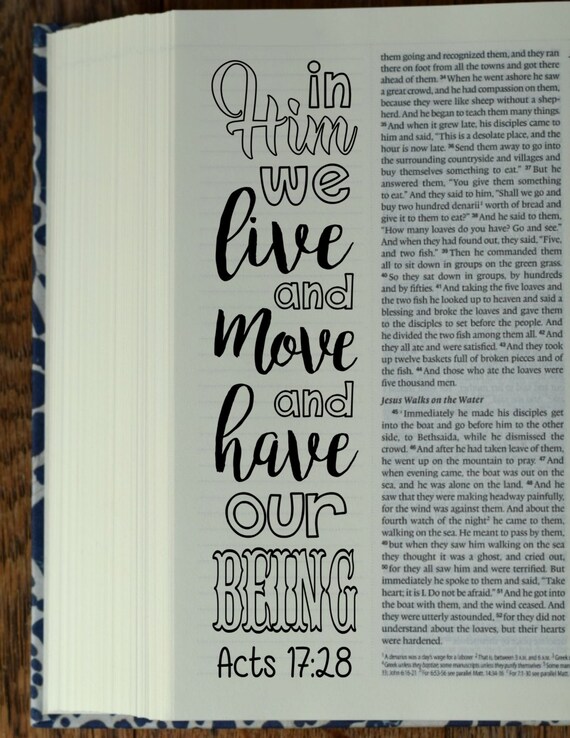 in
Him
we
live
and
move
and
have
our
BEING
Acts 17:28
them going and recognized them, and they ran
there on foot from all the towns and got there
ahead of them. 34 When he went ashore he saw
a great crowd, and he had compassion on them,
because they were like sheep without a shep-
herd. And he began to teach them many things.
35 And when it grew late, his disciples came to
him and said, "This is a desolate place, and the
hour is now late. 36 Send them away to go into
the surrounding countryside and villages and
buy themselves something to eat." 37 But he
answered them, "You give them something
to eat." And they said to him, "Shall we go and
buy two hundred denarii¹ worth of bread and
give it to them to eat?" 38 And he said to them,
"How many loaves do you have? Go and see."
And when they had found out, they said, "Five,
and two fish." 39 Then he commanded them
all to sit down in groups on the green grass.
40 So they sat down in groups, by hundreds
and by fifties. 41 And taking the five loaves and
the two fish he looked up to heaven and said a
blessing and broke the loaves and gave them
to the disciples to set before the people. And
he divided the two fish among them all. 42 And
they all ate and were satisfied. 43 And they took
up twelve baskets full of broken pieces and of
the fish. 44 And those who ate the loaves were
five thousand men.
Jesus Walks on the Water
45 Immediately he made his disciples get
into the boat and go before him to the other
side, to Bethsaida, while he dismissed the
crowd. 46 And after he had taken leave of them,
he went up on the mountain to pray. 47 And
when evening came, the boat was out on the
sea, and he was alone on the land. 48 And he
saw that they were making headway painfully,
for the wind was against them. And about the
fourth watch of the night² he came to them,
walking on the sea. He meant to pass by them,
49 but when they saw him walking on the sea
they thought it was a ghost, and cried out,
50 for they all saw him and were terrified. But
immediately he spoke to them and said, "Take
heart; it is I. Do not be afraid." 51 And he got into
the boat with them, and the wind ceased. And
they were utterly astounded, 52 for they did not
understand about the loaves, but their hearts
were hardened.
¹ A denarius was a day's wage for a laborer ² That is, between 3 A.M. and 6 A.M.